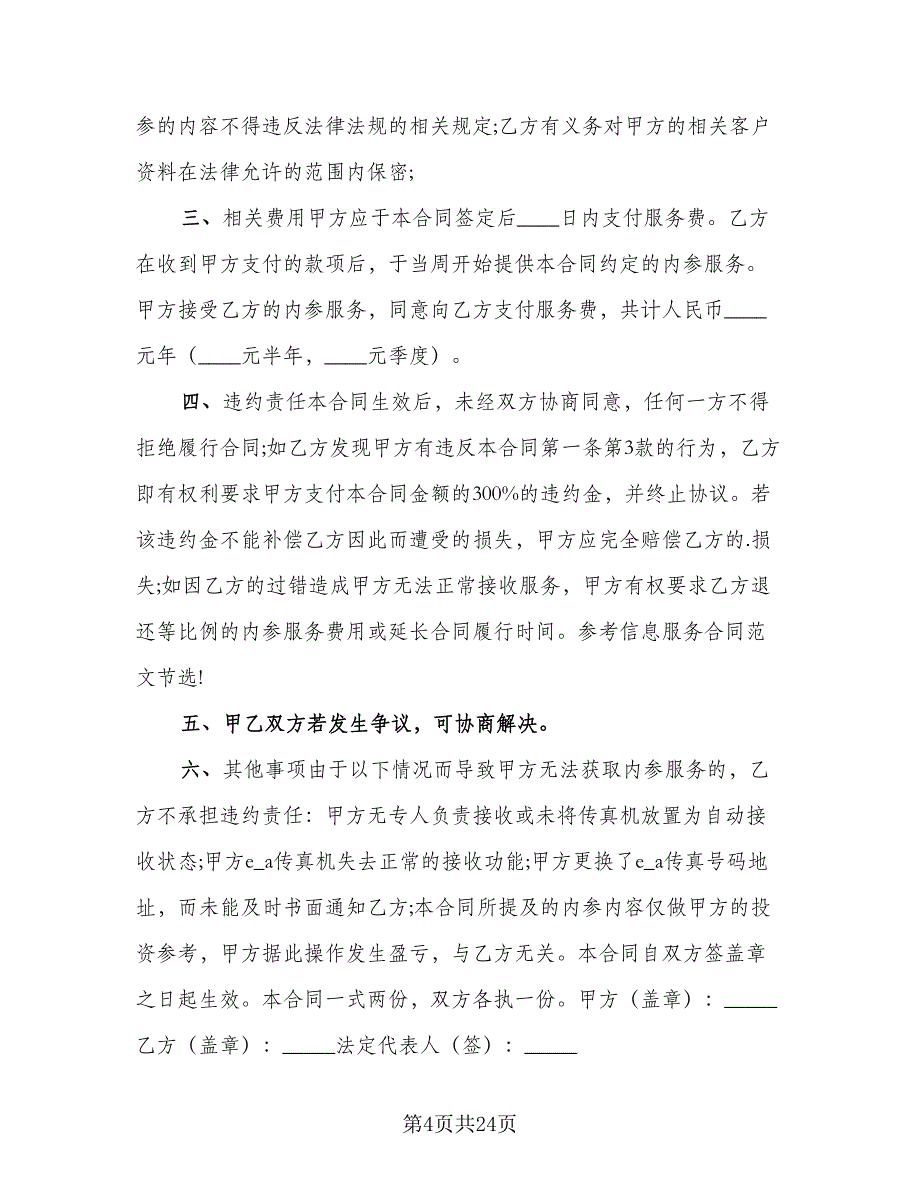 参的内容不得违反法律法规的相关规定;乙方有义务对甲方的相关客户
资料在法律允许的范围内保密;
三、相关费用甲方应于本合同签定后____日内支付服务费。乙方
在收到甲方支付的款项后，于当周开始提供本合同约定的内参服务。
甲方接受乙方的内参服务，同意向乙方支付服务费，共计人民币____
元年（____元半年，____元季度）。
四、违约责任本合同生效后，未经双方协商同意，任何一方不得
拒绝履行合同;如乙方发现甲方有违反本合同第一条第3款的行为，乙方
即有权利要求甲方支付本合同金额的300%的违约金，并终止协议。若
该违约金不能补偿乙方因此而遭受的损失，甲方应完全赔偿乙方的.损
失;如因乙方的过错造成甲方无法正常接收服务，甲方有权要求乙方退
还等比例的内参服务费用或延长合同履行时间。参考信息服务合同范
文节选!
五、甲乙双方若发生争议，可协商解决。
六、其他事项由于以下情况而导致甲方无法获取内参服务的，乙
方不承担违约责任：甲方无专人负责接收或未将传真机放置为自动接
收状态;甲方e_a传真机失去正常的接收功能;甲方更换了e_a传真号码地
址，而未能及时书面通知乙方;本合同所提及的内参内容仅做甲方的投
资参考，甲方据此操作发生盈亏，与乙方无关。本合同自双方签盖章
之日起生效。本合同一式两份，双方各执一份。甲方（盖章）：_____
乙方（盖章）：_____法定代表人（签）：_____
第4页共24页